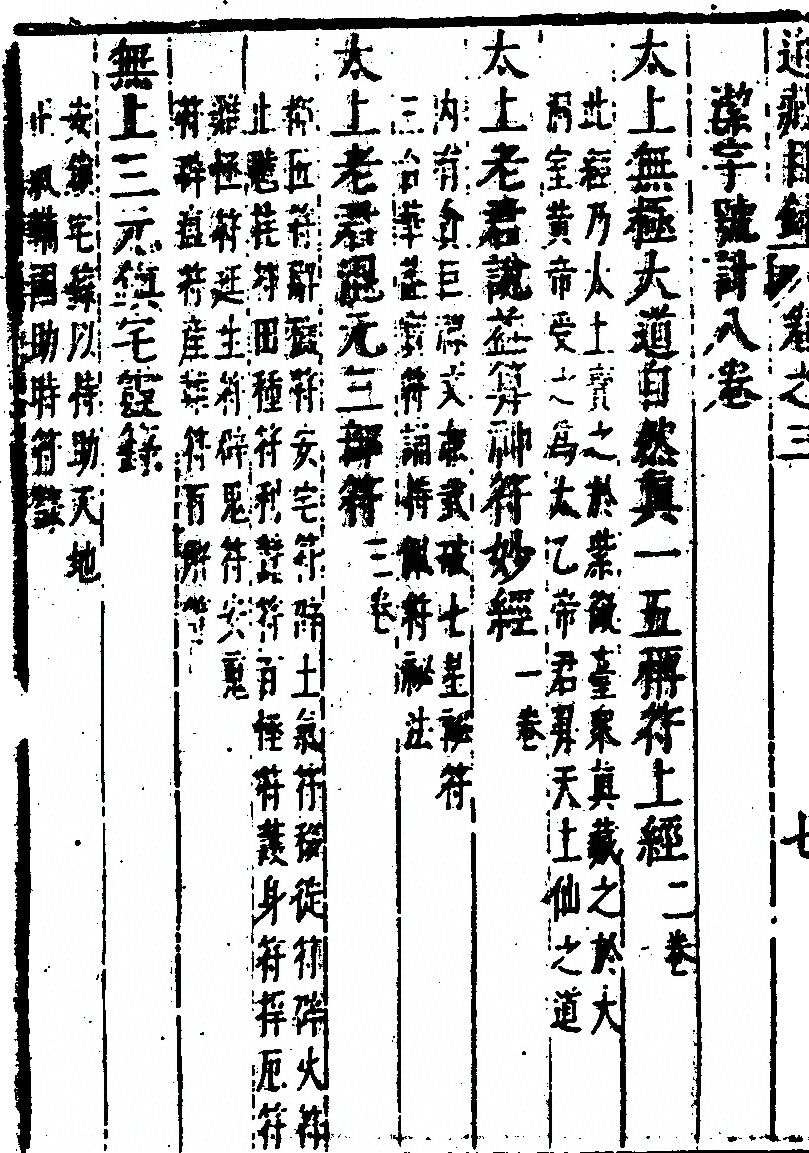 道藏目錄卷之三
七
潔字號計八卷
太上無極大道自然真一五稱符上經二卷
此經乃太上寶之於紫微臺眾真藏之於大
洞室黃帝受之為太乙帝君昇天上仙之道
太上老君說益算神符妙經一卷
內有貪巨祿文廉武破七星祕符
三台華蓋符誦持佩符祕法
太上老君混元三部符三卷
符辟蠶符安宅符辟土氣符移徙符辟火符
止符田種符利蠶符百怪符護身符捍厄符
雜怪符延生符辟鬼符安
符辟瘟符産符百解符
無上三元鎮宅靈籙
安鎮宅籙以持助天地
輔國助時符